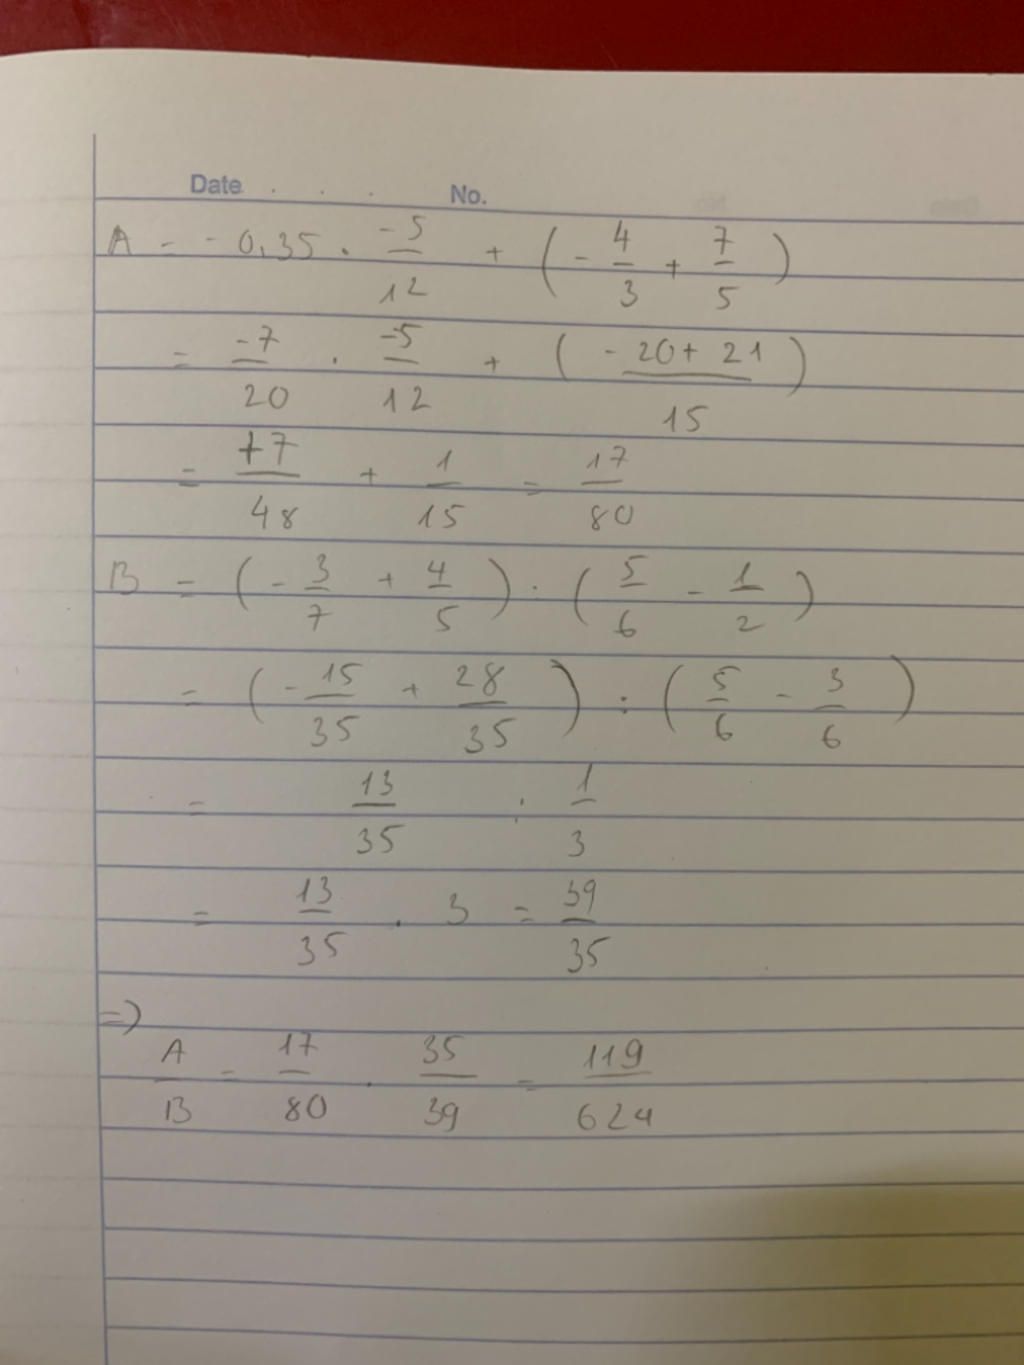 Date . . . No.
A = -0,35 . -5/12 + (-4/3 + 7/5)
= -7/20 . -5/12 + (-20+21/15)
= +7/48 + 1/15 = 17/80
B = (-3/7 + 4/5) : (5/6 - 1/2)
= (-15/35 + 28/35) : (5/6 - 3/6)
= 13/35 : 1/3
= 13/35 . 3 = 39/35
=>
A/B = 17/80 . 35/39 = 119/624